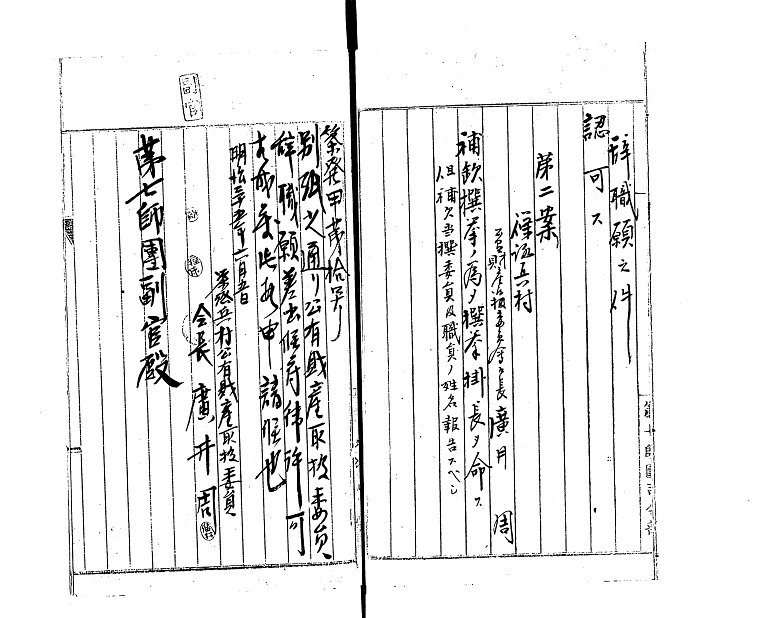 辞職願之件
認可ス
第二案
兵村
公有財産取扱委員会々長 廣井 周
補欠撰挙ノ為メ撰挙掛長ヲ命ス
但補欠当撰委員及職員ノ姓名報告スヘシ
副官
発甲第拾号
別紙之通リ公有財産取扱委員
辞職願差出候ニ付御許可
相成度此段申請候也
明治三十五年六月五日
兵村公有財産取扱委員
会長 廣井 周
第七師團副官殿